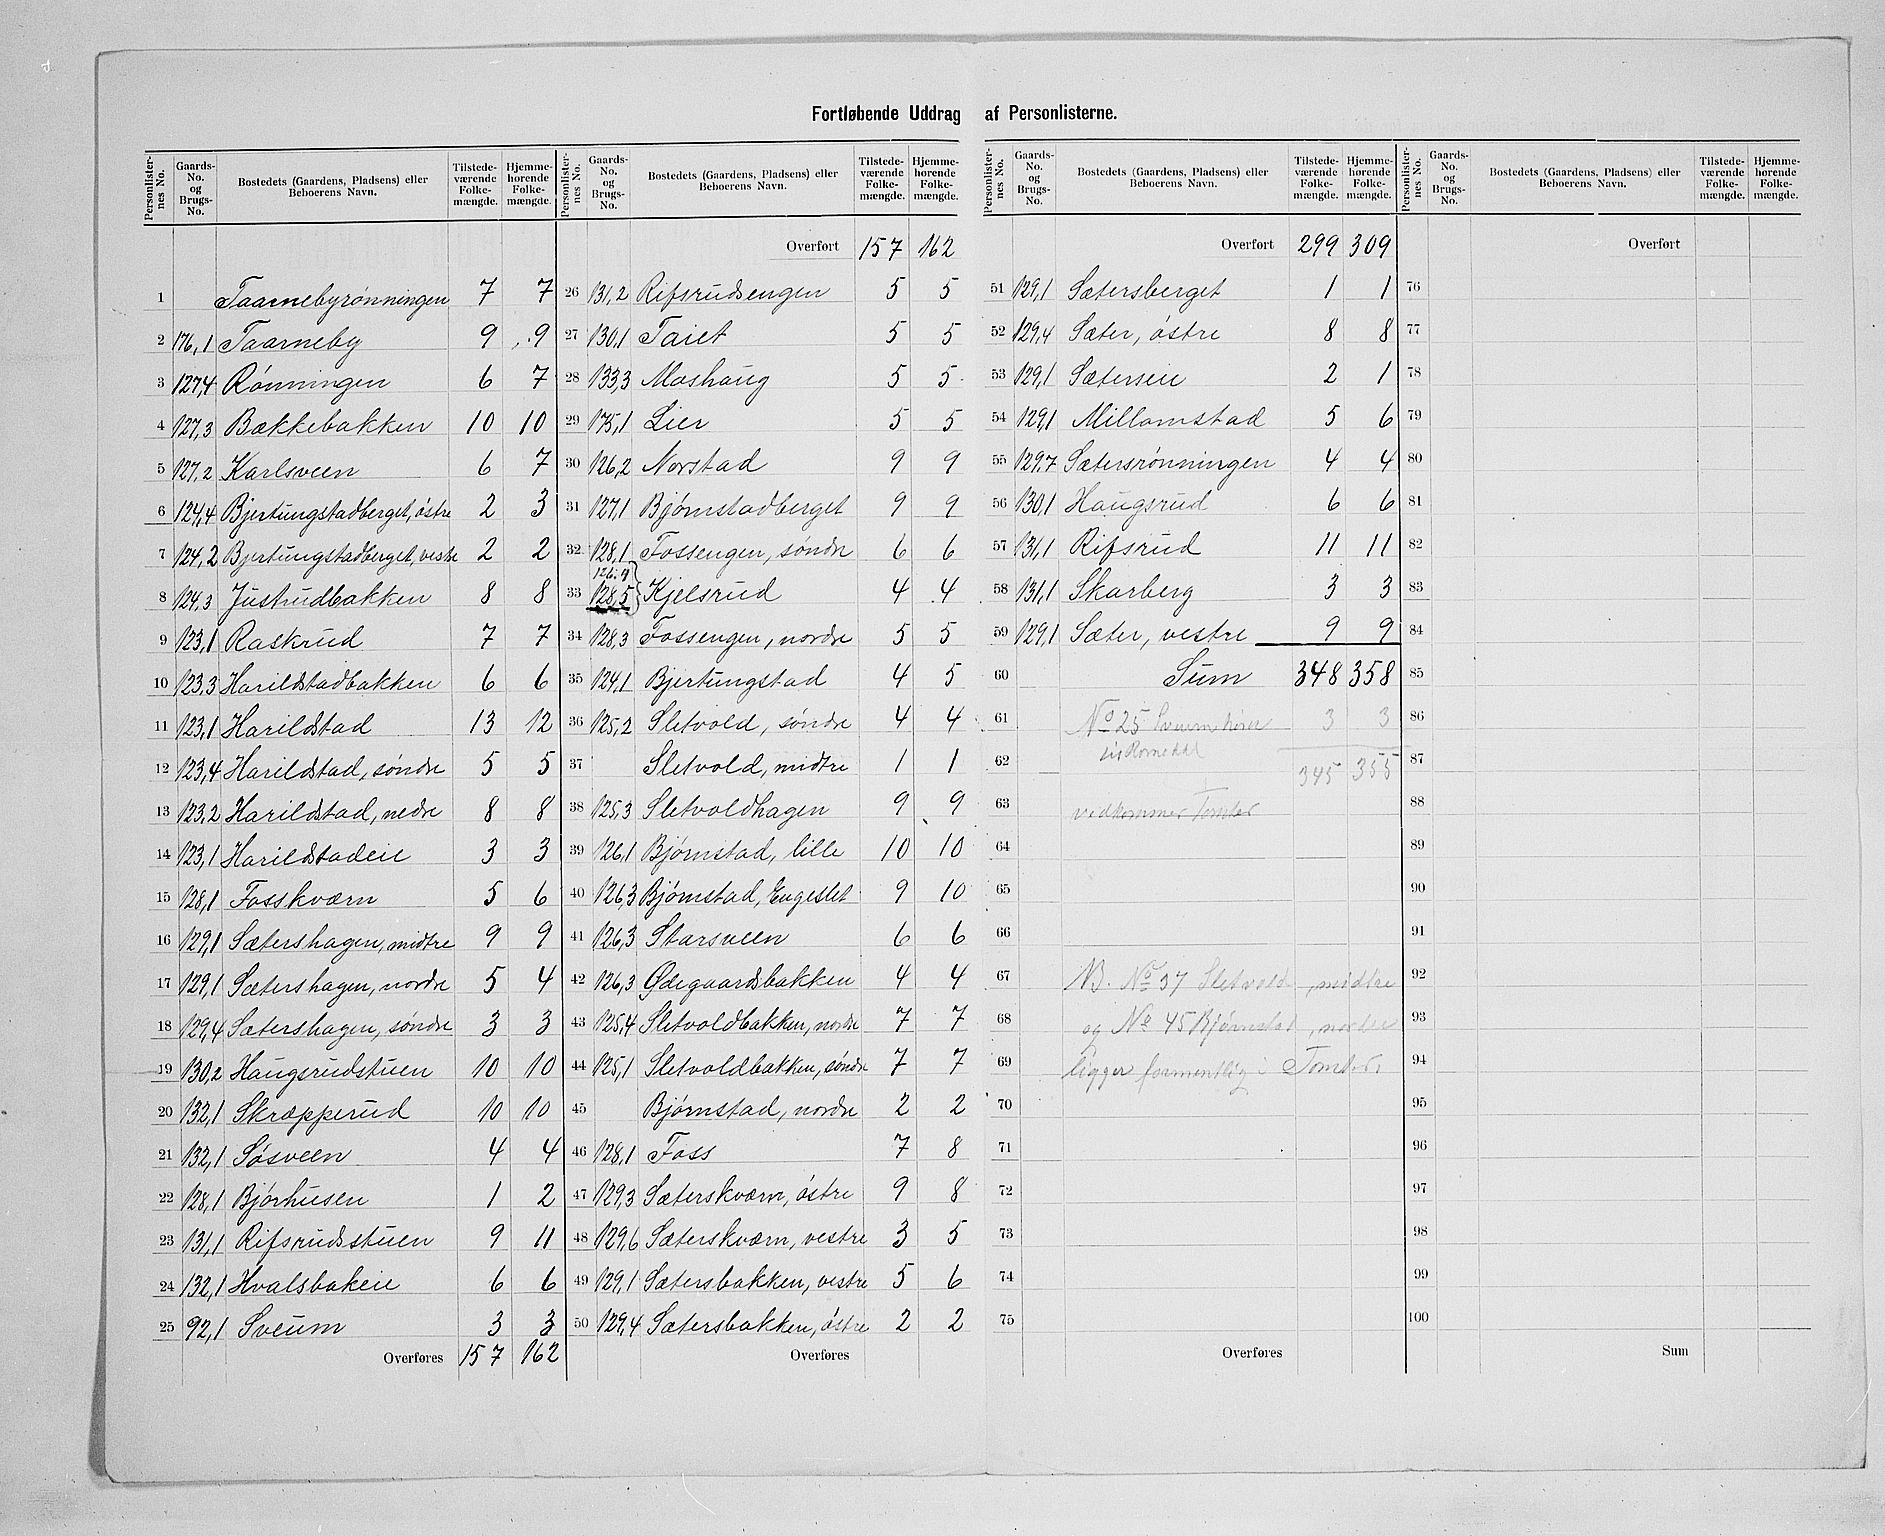 Fortløbende Uddrag af Personlisterne.
Personlisternes No. | Gaards-No. og Brugs-No. | Bostedets (Gaardens, Pladsens) eller Beboerens Navn. | Tilstedeværende Folkemængde. | Hjemmehørende Folkemængde.
1 Taarnebyrønningen 7 7
2 176,1 Taarneby 9 9
3 127,4 Rønningen 6 7
4 127,3 Bækkebakken 10 10
5 127,2 Karlsveen 6 7
6 124,4 Bjertungstadberget, østre 2 3
7 124,2 Bjertungstadberget, vestre 2 2
8 124,3 Justrudbakken 8 8
9 123,1 Raskrud 7 7
10 123,3 Harildstadbakken 6 6
11 123,1 Harildstad 13 12
12 123,4 Harildstad, søndre 5 5
13 123,2 Harildstad, nedre 8 8
14 123,1 Harildstadeie 3 3
15 128,1 Fosskværn 5 6
16 129,1 Sætershagen, midtre 9 9
17 129,1 Sætershagen, nordre 5 4
18 129,4 Sætershagen, søndre 3 3
19 130,2 Haugsrudstuen 10 10
20 132,1 Skræpperud 10 10
21 132,1 Søsveen 4 4
22 128,1 Bjørhusen 1 2
23 131,1 Rifsrudsstuen 9 11
24 132,1 Hvalsbakeie 6 6
25 92,1 Sveum 3 3
Overføres 157 162
Personlisternes No. | Gaards-No. og Brugs-No. | Bostedets (Gaardens, Pladsens) eller Beboerens Navn. | Tilstedeværende Folkemængde. | Hjemmehørende Folkemængde.
Overført 157 162
26 131,2 Rifsrudsengen 5 5
27 130,1 Taiet 5 5
28 133,3 Moshaug 5 5
29 175,1 Lier 5 5
30 126,2 Norstad 9 9
31 127,1 Bjørnstadberget 9 9
32 128,1 Fossengen, søndre 6 6
126,4
33 128,5 Kjelsrud 4 4
34 128,3 Fossengen, nordre 5 5
35 124,1 Bjertungstad 4 5
36 125,2 Sletvold, søndre 4 4
37 Sletvold, midtre 1 1
38 125,3 Sletvoldhagen 9 9
39 126,1 Bjørnstad, lille 10 10
40 126,3 Bjørnstad, Engeslet 9 10
41 126,3 Starsveen 6 6
42 126,3 Ødegaardsbakken 4 4
43 125,4 Sletvoldbakken, nordre 7 7
44 125,1 Sletvoldbakken, søndre 7 7
45 Bjørnstad, nordre 2 2
46 128,1 Foss 7 8
47 129,3 Sæterskværn, østre 9 8
48 129,6 Sæterskværn, vestre 3 5
49 129,1 Sætersbakken, vestre 5 6
50 129,4 Sætersbakken, østre 2 2
Overføres
Personlisternes No. | Gaards-No. og Brugs-No. | Bostedets (Gaardens, Pladsens) eller Beboerens Navn. | Tilstedeværende Folkemængde. | Hjemmehørende Folkemængde.
Overført 299 309
51 129,1 Sætersberget 1 1
52 129,4 Sæter, østre 8 8
53 129,1 Sæterseie 2 1
54 129,1 Millomstad 5 6
55 129,7 Sætersrønningen 4 4
56 130,1 Haugsrud 6 6
57 131,1 Rifsrud 11 11
58 131,1 Skarberg 3 3
59 129,1 Sæter, vestre 9 9
60 Sum 348 358
61 No 25 Sveum hører 3 3
62 Romedal 345 355
63 vedkommer Tomter
64
65
66
67 NB. No 37 Sletvold, midtre
68 og No 45 Bjørnstad, nordre
69 ligger formentlig i Tomter.
70
71
72
73
74
75
Overføres
Personlisternes No. | Gaards-No. og Brugs-No. | Bostedets (Gaardens, Pladsens) eller Beboerens Navn. | Tilstedeværende Folkemængde. | Hjemmehørende Folkemængde.
Overført
76
77
78
79
80
81
82
83
84
85
86
87
88
89
90
91
92
93
94
95
96
97
98
99
100
Sum